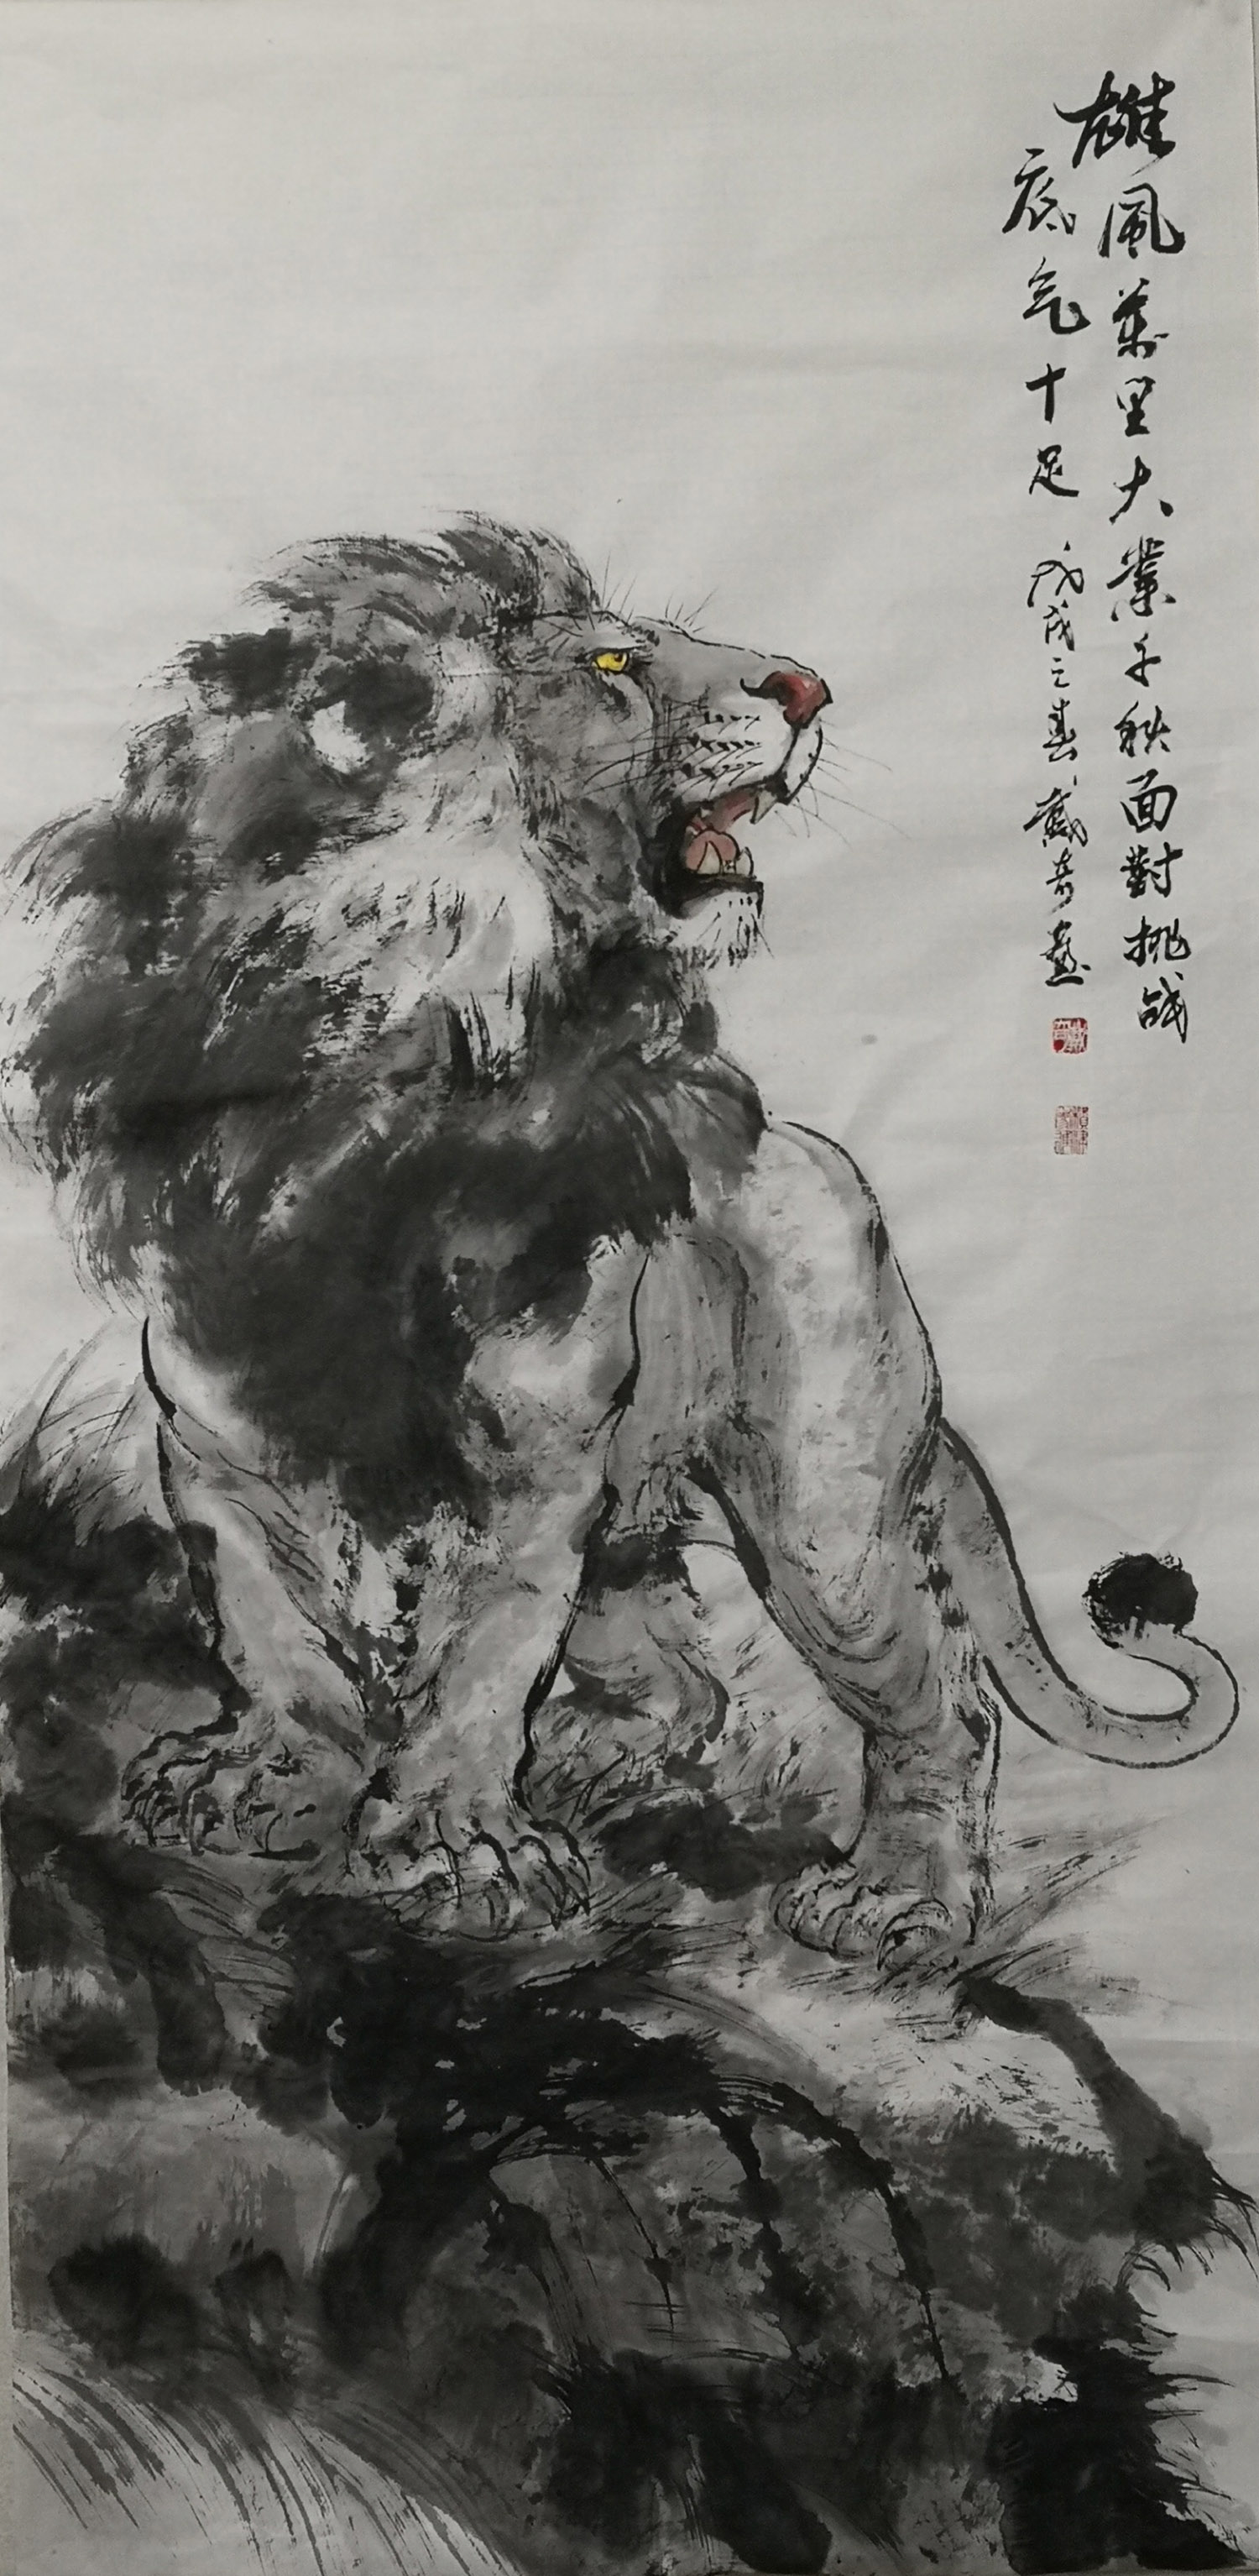 雄風萬里大業千秋面對挑战
底气十足 戊戌之春 戴奇畫